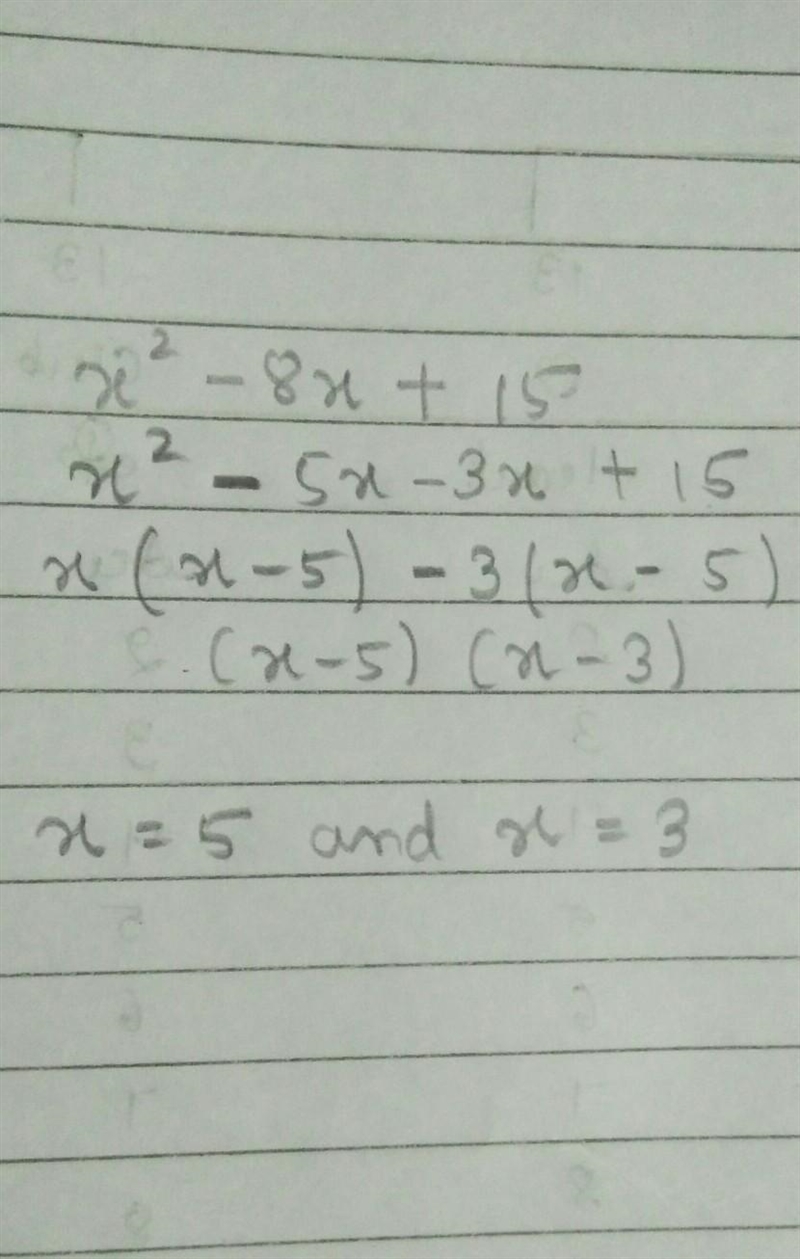 x² - 8x + 15
x² - 5x - 3x + 15
x(x - 5) - 3(x - 5)
(x - 5) (x - 3)
x = 5 and x = 3